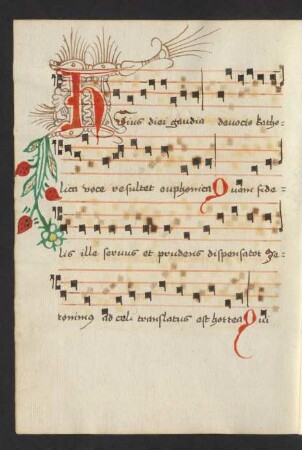 Huius diei gaudia devocio katho-
lica voce resultet euphonica Quam fide-
lis ille servus et prudens dispensator Je-
ronimus ad celi translatus est horrea Qui